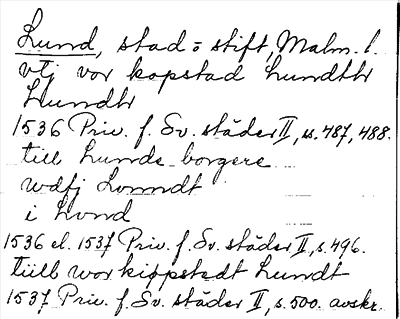 Lund, stad o stift, Malm. l.
vtj vor köpstad Lundthr
Lundtr
1536 Priv. f. Sv. städer II, s. 487, 488.
till Lunds borgere
wdfj Lonndt
i Lvnd
1536 el. 1537 Priv. f. Sv. städer II, s. 496.
tiill wor kiøpstedt Lundt
1537 Priv. f. Sv. städer II, s. 500. avskr.